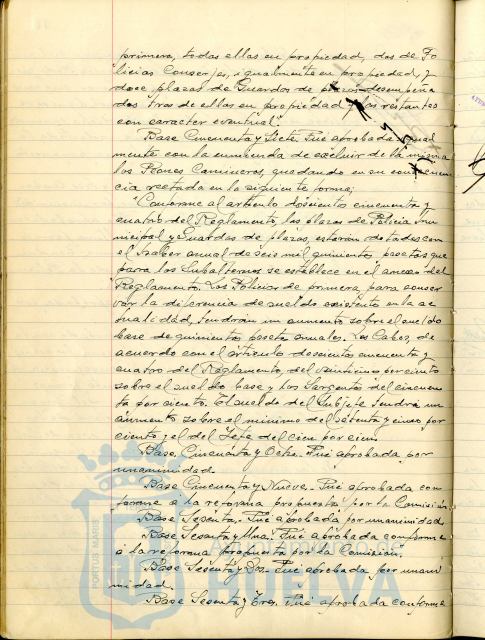 primera, todas ellas en propiedad, dos de Po-
licias Conserjes, igualmente en propiedad, y
doce plazas de Guardas de plazas desempeña-
das tres de ellas en propiedad y las restantes
con caracter eventual".
Base Cincuenta y Siete. Fué aprobada igual
mente con la enmienda de excluir de la misma
los Peones Camineros, quedando en su consecuen
cia rectada en la siguiente forma;
"Conforme al artículo doscientos cincuenta y
cuatro del Reglamento, las plazas de Policia Mu-
nicipal y Guardas de plazas, estarán dotadas con
el haber anual de seis mil quinientas pesetas que
para los Subalternos se establece en el anexo del
Reglamento. Los Policias de primera, para conser
var la diferencia de sueldo existente en la ac
tualidad, tendrán un aumento sobre el sueldo
base de quinientas pesetas anuales. Los Cabos, de
acuerdo con el artículo doscientos cincuenta y
cuatro del Reglamento, del veinticinco por ciento
sobre el sueldo base y los Sargentos del cincuen
ta por ciento. El sueldo del Subjefe tendrá un
aumento sobre el mínimo del setenta y cinco por
ciento y el del Jefe del cien por cien.
Base Cincuenta y Ocho. Fué aprobada por
unanimidad.
Base Cincuenta y Nueve. Fué aprobada con-
forme a la reforma propuesta por la Comisión.
Base Sesenta. Fué aprobada por unanimidad.
Base Sesenta y Una. Fué aprobada conforme
a la reforma propuesta por la Comisión.
Base Sesenta y Dos. Fué aprobada por unani
midad.
Base Sesenta y Tres. Fué aprobada conforme
PORTUS MARIS
Ayuntamiento de
HUELVA